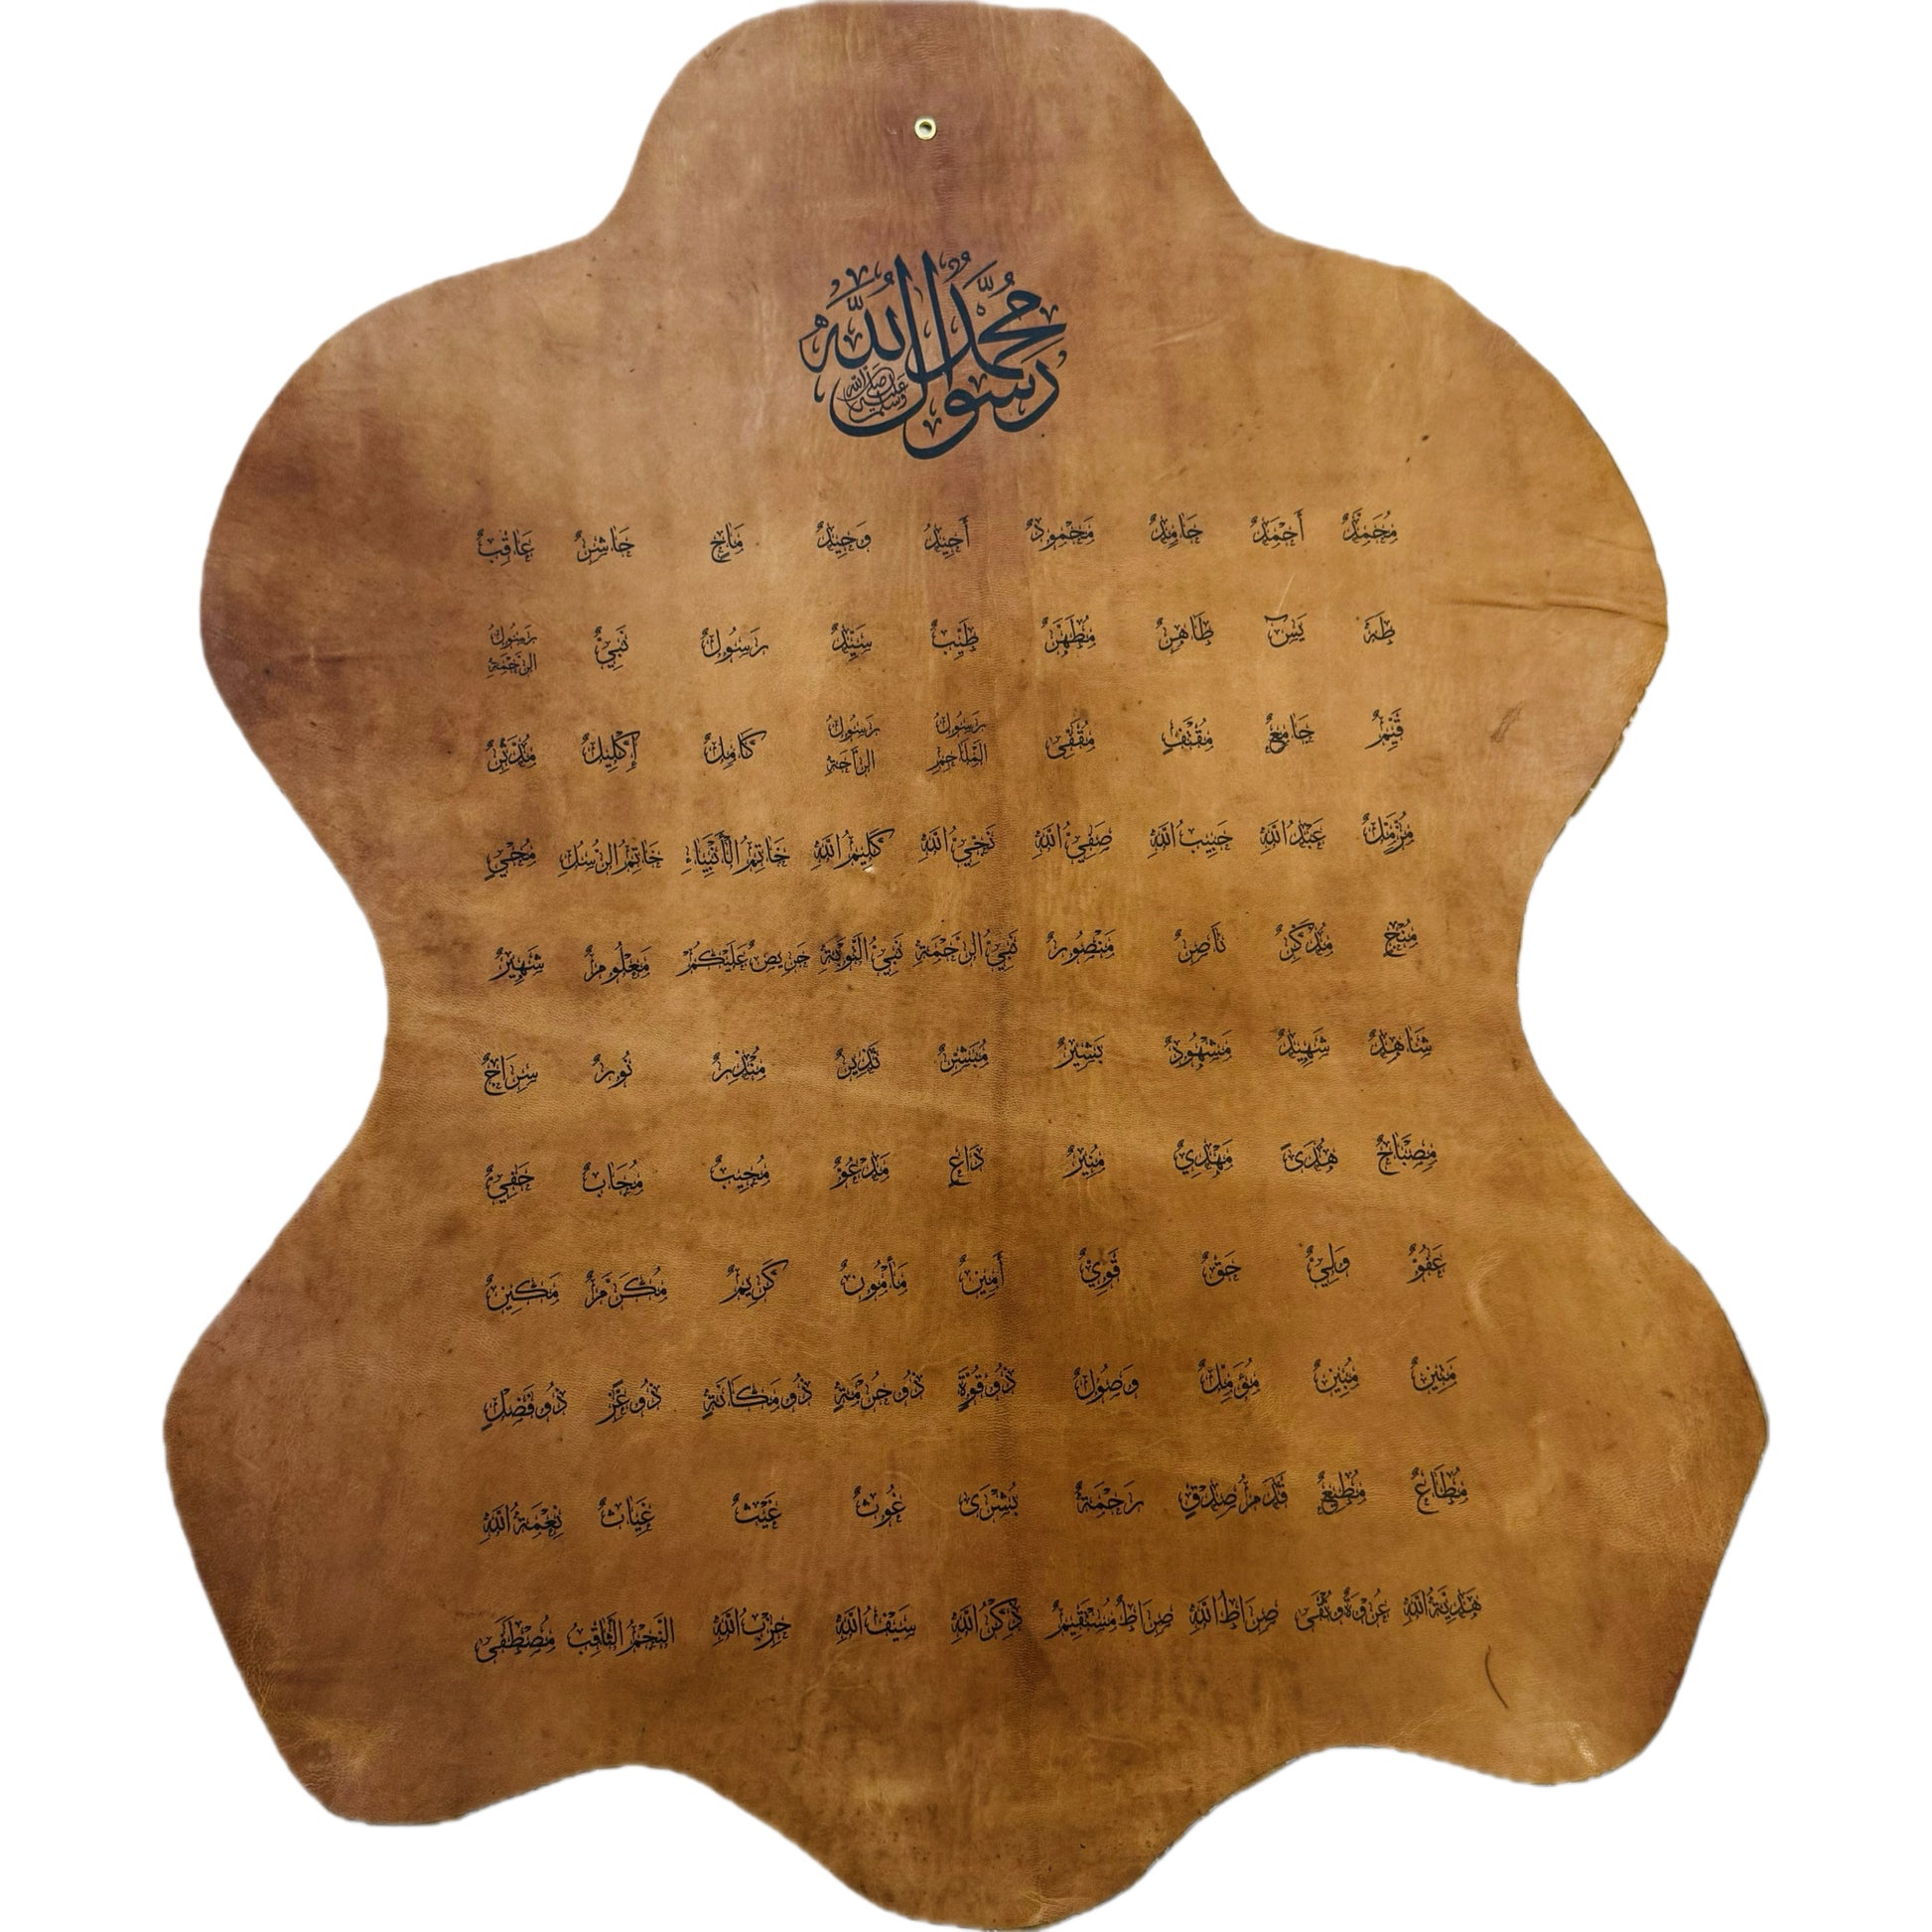 محمد رسول الله صلى الله عليه وسلم
مُحَمَّدٌ أَحْمَدٌ حَامِدٌ مَحْمُودٌ أَحِيدٌ وَحِيدٌ مَاحٍ حَاشِرٌ عَاقِبٌ
طٰهٰ يٰسٓ طَاهِرٌ مُطَهَّرٌ طَيِّبٌ سَيِّدٌ رَسُولٌ نَبِيٌّ رَسُولُ الرَّحْمَةِ
قَيِّمٌ جَامِعٌ مُقْتَفٍ مُقَفَّى رَسُولُ الْمَلَاحِمِ رَسُولُ الرَّاحَةِ كَامِلٌ إِكْلِيلٌ مُدَّثِّرٌ
مُزَّمِّلٌ عَبْدُ اللَّهِ حَبِيبُ اللَّهِ صَفِيُّ اللَّهِ نَجِيُّ اللَّهِ كَلِيمُ اللَّهِ خَاتِمُ الْأَنْبِيَاءِ خَاتِمُ الرُّسُلِ مُحْيٍ
مُنْجٍ مُذَكِّرٌ نَاصِرٌ مَنْصُورٌ نَبِيُّ الرَّحْمَةِ نَبِيُّ التَّوْبَةِ حَرِيصٌ عَلَيْكُمْ مَعْلُومٌ شَهِيرٌ
شَاهِدٌ شَهِيدٌ مَشْهُودٌ بَشِيرٌ مُبَشِّرٌ نَذِيرٌ مُنْذِرٌ نُورٌ سِرَاجٌ
مِصْبَاحٌ هُدًى مَهْدِيٌّ مُنِيرٌ دَاعٍ مَدْعُوٌّ مُجِيبٌ مُجَابٌ حَفِيٌّ
عَفُوٌّ وَلِيٌّ حَقٌّ قَوِيٌّ أَمِينٌ مَأْمُونٌ كَرِيمٌ مُكَرَّمٌ مَكِينٌ
مَتِينٌ مُبِينٌ مُؤَمِّلٌ وَصُولٌ ذُو قُوَّةٍ ذُو حُرْمَةٍ ذُو مَكَانَةٍ ذُو عِزٍّ ذُو فَضْلٍ
مُطَاعٌ مُطِيعٌ قَدَمُ صِدْقٍ رَحْمَةٌ بُشْرَى غَوْثٌ غَيْثٌ غِيَاثٌ نِعْمَةُ اللَّهِ
هَدِيَّةُ اللَّهِ عُرْوَةٌ وُثْقَى صِرَاطُ اللَّهِ صِرَاطٌ مُسْتَقِيمٌ ذِكْرُ اللَّهِ سَيْفُ اللَّهِ حِزْبُ اللَّهِ النَّجْمُ الثَّاقِبُ مُصْطَفَى